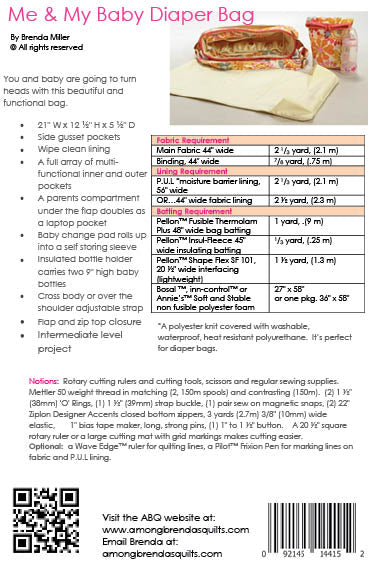 Me & My Baby Diaper Bag
By Brenda Miller
@ All rights reserved
You and baby are going to turn
heads with this beautiful and
functional bag.
• 21" W x 12 ½" H x 5 ½" D
• Side gusset pockets
• Wipe clean lining
• A full array of multi-
functional inner and outer
pockets
• A parents compartment
under the flap doubles as
a laptop pocket
• Baby change pad rolls up
into a self storing sleeve
• Insulated bottle holder
carries two 9" high baby
bottles
• Cross body or over the
shoulder adjustable strap
• Flap and zip top closure
• Intermediate level
project
Fabric Requirement
Main Fabric 44" wide 2 ⅓ yard, (2.1 m)
Binding, 44" wide ⅞ yard, (.75 m)
Lining Requirement
P.U.L *moisture barrier lining, 2 ⅓ yard, (2.1 m)
56" wide
OR…44" wide fabric lining 2 ½ yard, (2.3 m)
Batting Requirement
Pellon™ Fusible Thermolam 1 yard, .(9 m)
Plus 48" wide bag batting
Pellon™ Insul-Fleece 45" ⅓ yard, (.25 m)
wide insulating batting
Pellon™ Shape Flex SF 101, 1 ½ yard, (1.3 m)
20 ½" wide interfacing
(lightweight)
Bosal ™, inn-control™ or 27" x 58"
Annie's™ Soft and Stable or one pkg. 36" x 58"
non fusible polyester foam
*A polyester knit covered with washable,
waterproof, heat resistant polyurethane. It's perfect
for diaper bags.
Notions: Rotary cutting rulers and cutting tools, scissors and regular sewing supplies.
Mettler 50 weight thread in matching (2, 150m spools) and contrasting (150m). (2) 1 ½"
(38mm) 'O' Rings, (1) 1 ½" (39mm) strap buckle, (1) pair sew on magnetic snaps, (2) 22"
Ziplon Designer Accents closed bottom zippers, 3 yards (2.7m) 3/8" (10mm) wide
elastic, 1" bias tape maker, long, strong pins, (1) 1" to 1 ½" button. A 20 ½" square
rotary ruler or a large cutting mat with grid markings makes cutting easier.
Optional: a Wave Edge™ ruler for quilting lines, a Pilot™ Frixion Pen for marking lines on
fabric and P.U.L lining.
Visit the ABQ website at:
www.amongbrendasquilts.com
Email Brenda at:
amongbrendasquilts.com
0 92145 14415 2